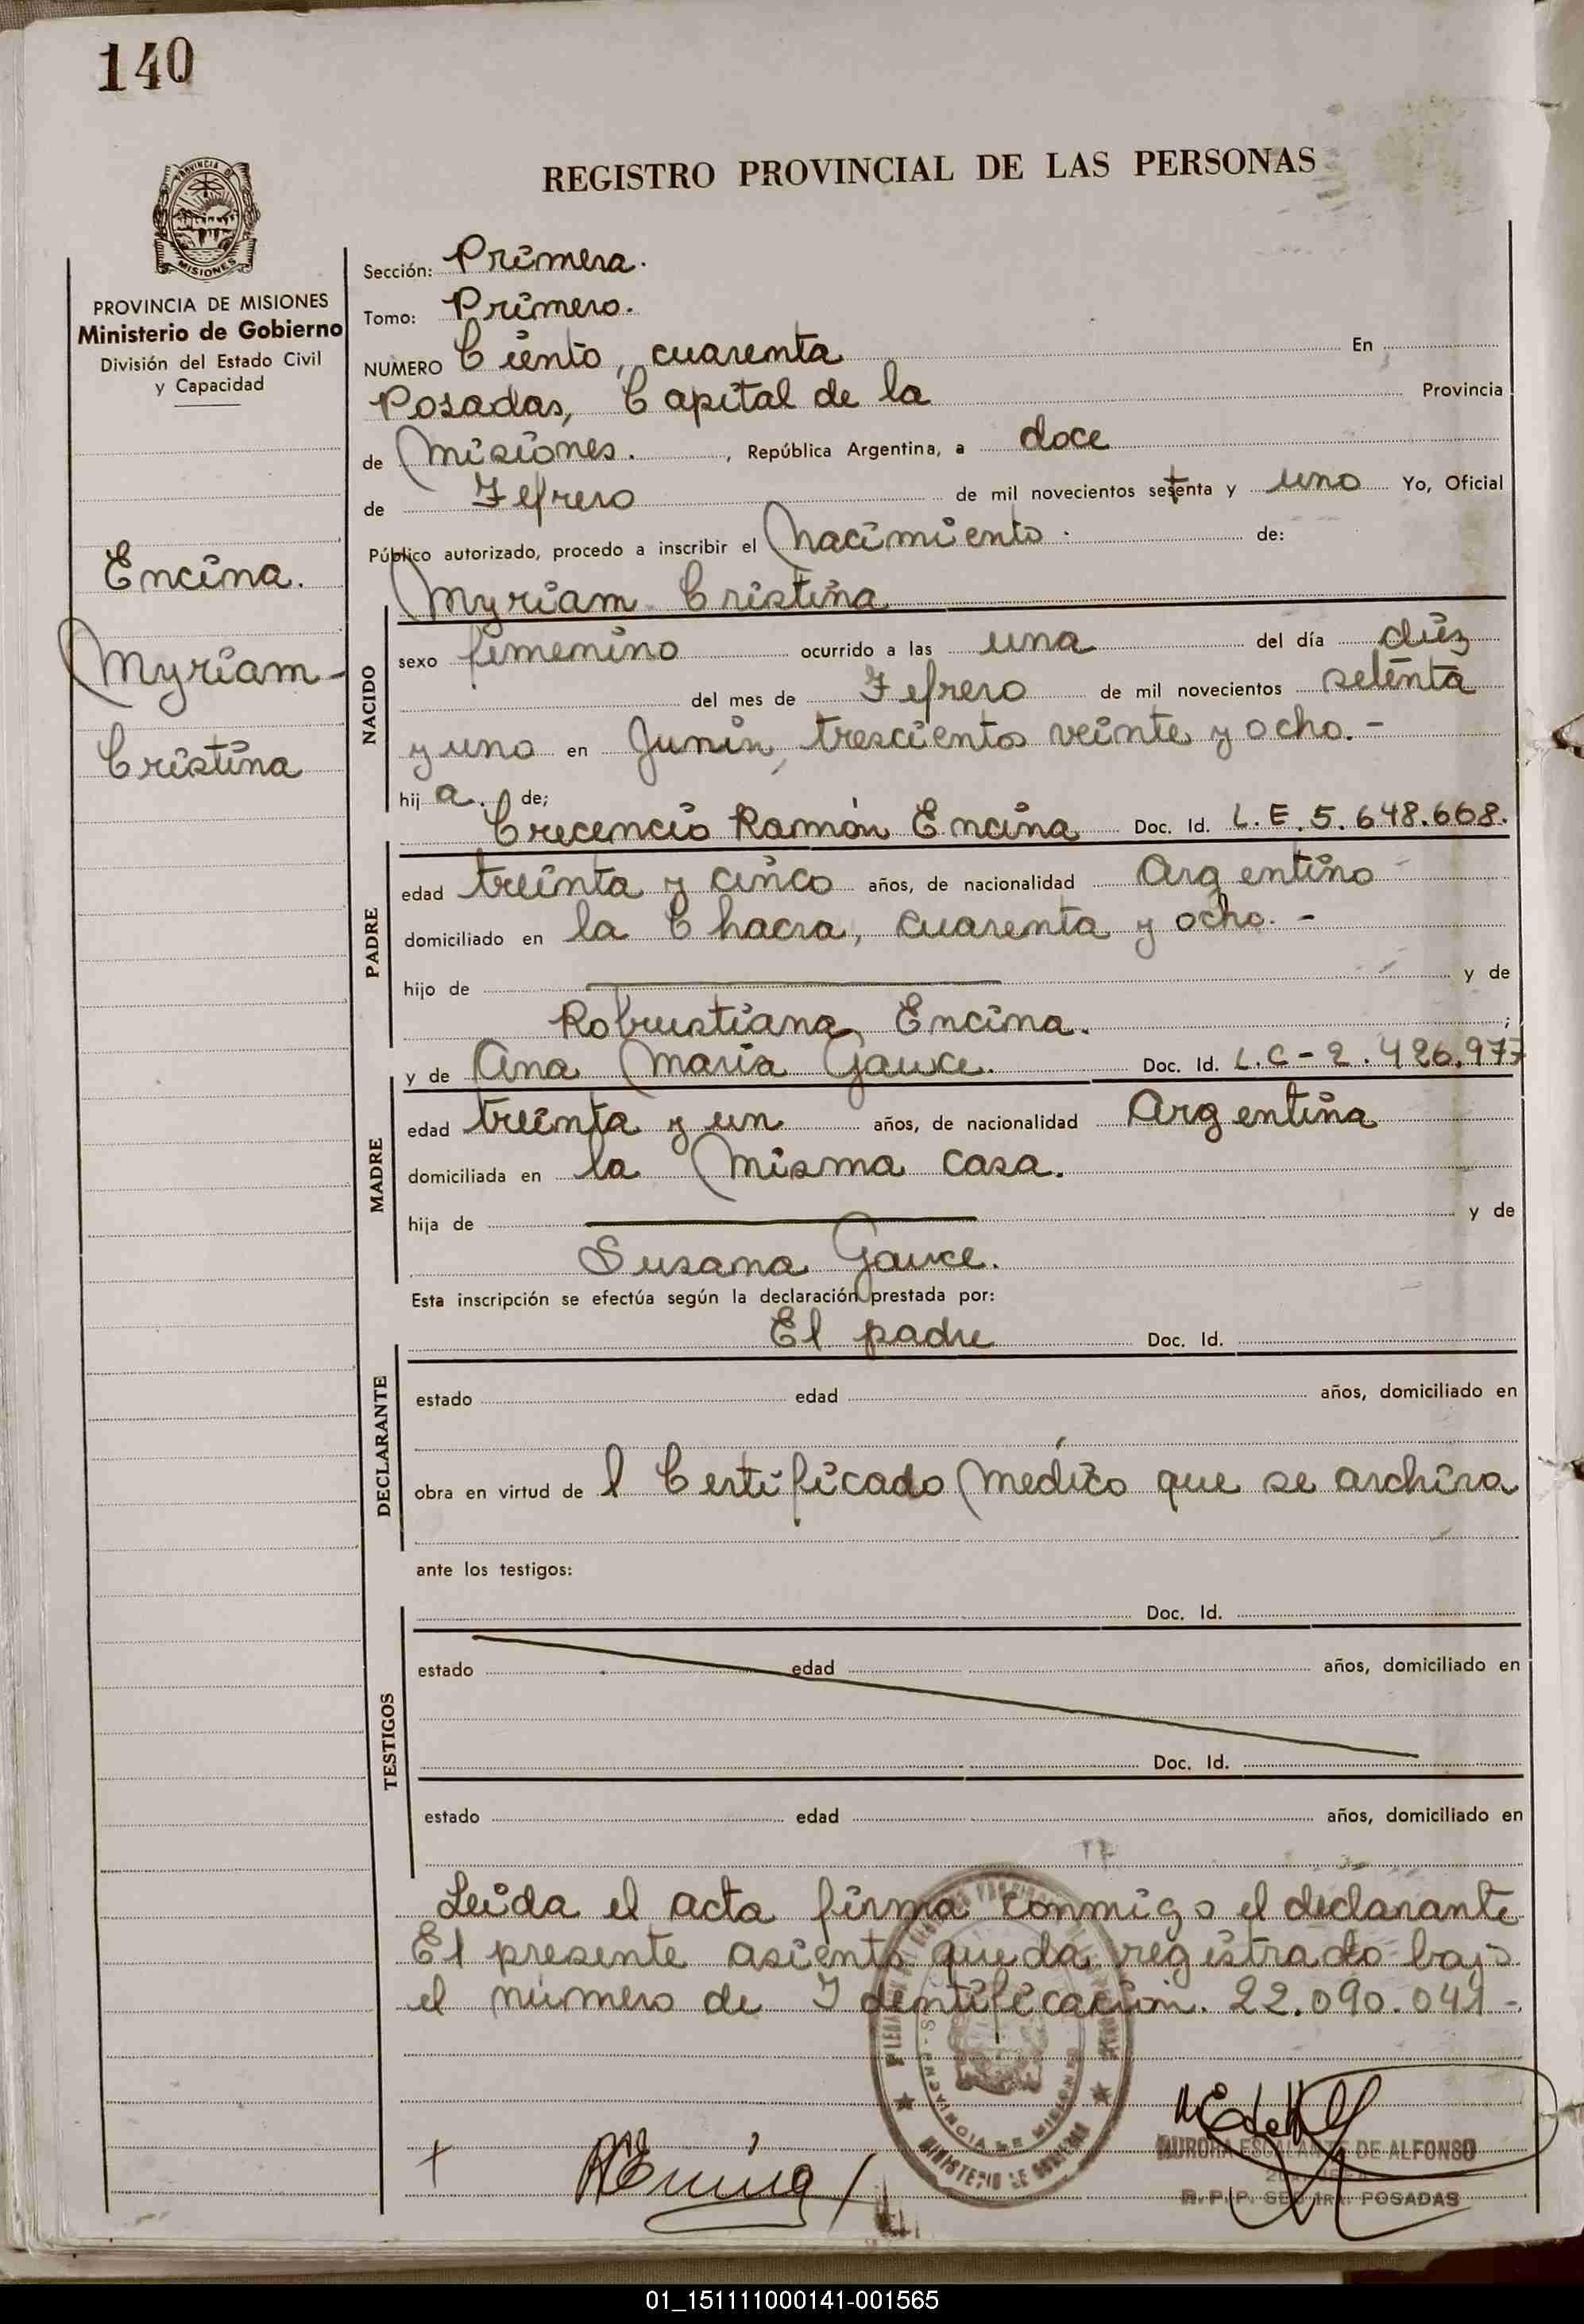 140
REGISTRO PROVINCIAL DE LAS PERSONAS
PROVINCIA DE MISIONES
PROVINCIA DE MISIONES
Ministerio de Gobierno
División del Estado Civil
y Capacidad
Encina.
Myriam-
Cristina
Sección: Primera.
Tomo: Primero.
NUMERO Ciento, cuarenta En
Posadas, Capital de la Provincia
de Misiones. , República Argentina, a doce
de Febrero de mil novecientos setenta y uno Yo, Oficial
Público autorizado, procedo a inscribir el Nacimiento. de:
Myriam Cristina
NACIDO
sexo femenino ocurrido a las una del día diez
del mes de Febrero de mil novecientos setenta
y uno en Junin, trescientos veinte y ocho.-
hij a. de;
Crecencio Ramón Encina Doc. Id. L.E.5.648.668.
PADRE
edad treinta y cinco años, de nacionalidad Argentino
domiciliado en la Chacra, cuarenta y ocho.-
hijo de y de
Robustiana Encina. ;
y de Ana María Gauce. Doc. Id. L.C-2.426.977
MADRE
edad treinta y un años, de nacionalidad Argentina
domiciliada en la misma casa.
hija de y de
Susana Gauce.
Esta inscripción se efectúa según la declaración prestada por:
El padre Doc. Id.
DECLARANTE
estado edad años, domiciliado en
obra en virtud de l Certificado Médico que se archiva
ante los testigos:
Doc. Id.
TESTIGOS
estado edad años, domiciliado en
Doc. Id.
estado edad años, domiciliado en
Leida el acta firma conmigo el declarante
El presente asiento queda registrado bajo
el número de Identificación. 22.090.041-
MINISTERIO DE GOBIERNO
PROVINCIA DE MISIONES
AURORA ESCALANTE DE ALFONSO
R.P.P. SEC. 1ra. POSADAS
01_151111000141-001565